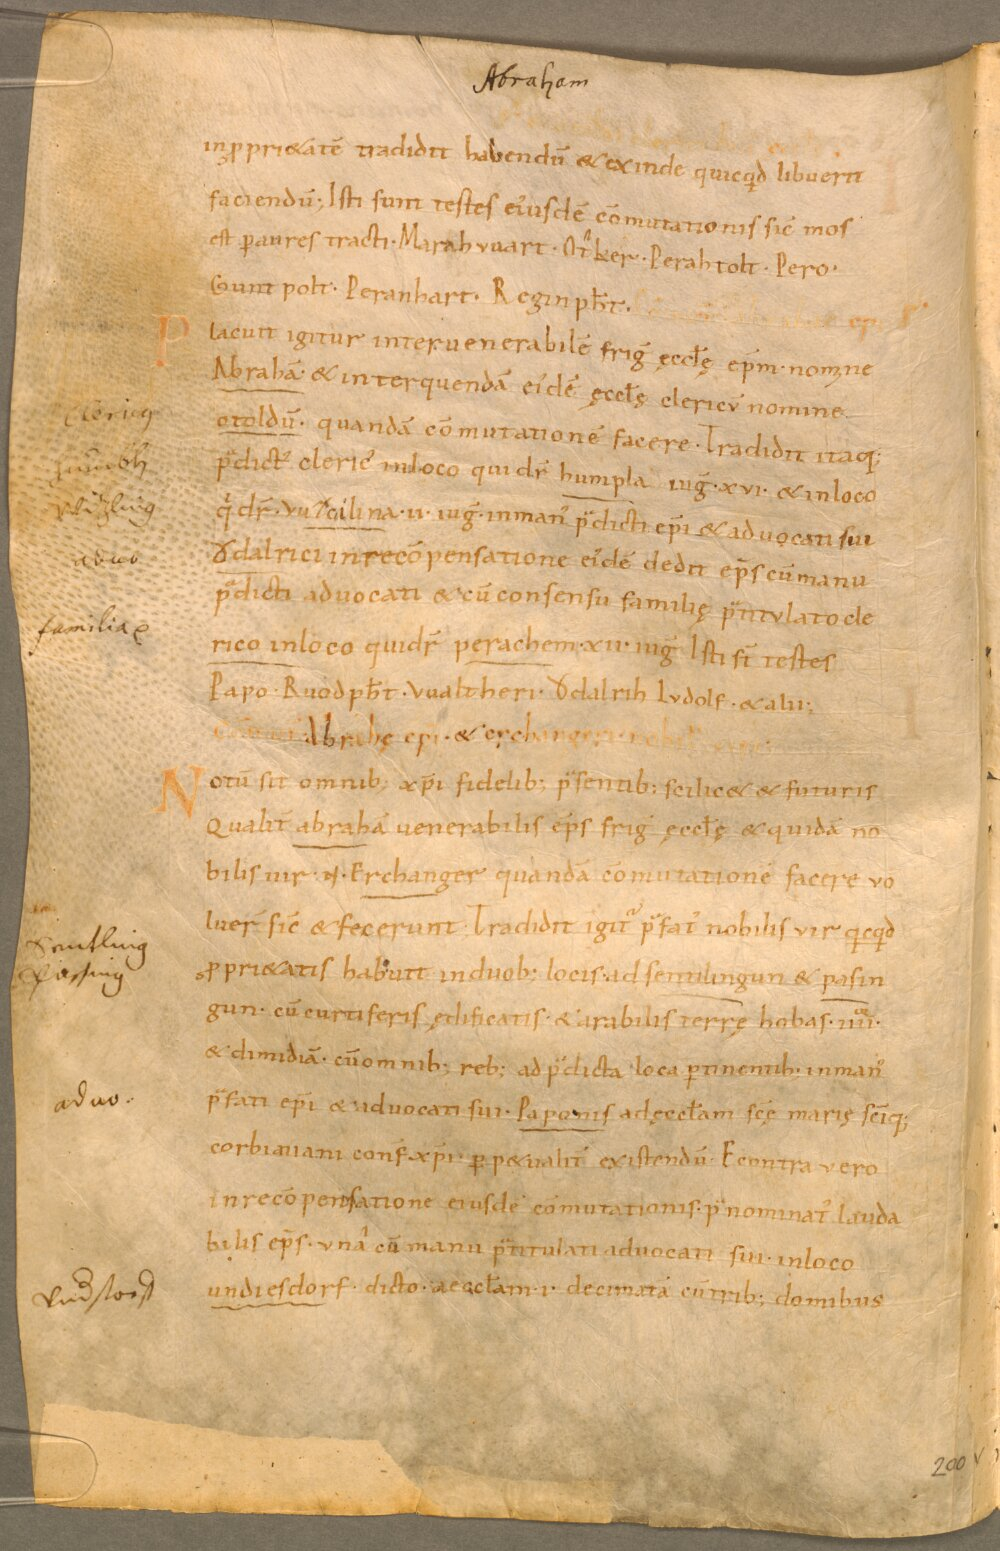 Abraham
inpprietatē tradidit habendū & exinde quicqđ libuerit
faciendū; Isti sunt testes ei'usdē cōmutationis sic̄ mos
est p aures tracti · Marahuuart · Ot'ker · Perahtolt · Pero ·
Gunt polt · Peranhart · Reginpħt ·
ep̄i
Placuit igitur inter uenerabilē friḡ ęccłę ep̄m · nomine
Abrahā · & inter quendā ei'dē ęccłę clericū nomine
otoldū · quandā cōmutationē facere · Tradidit itaq;
p̄dict' cleric' inloco qui dr̄ humpla iuḡ · xvi · & inloco
q̇ dr̄ · vuizilina · ii · iuḡ · inman' p̄dicti ep̄i & aduocati sui
Ǒdalrici inrecōpensatione ei'dē dedit ep̄s cū manu
p̄dicti aduocati & cū consensu familię p̄titulato cle
rico inloco qui dr̄ perachem · xii · iuḡ Isti st̄ testes
Papo · Ruodpħt · Vualtheri · Ǒdalrih Ludolf · & alii;
Abrahę ep̄i · & erchangeri
Notū sit omnib; xp̄i fidelib; p̄sentib; scilic& & futuris
Qualit' abrahā uenerabilis ep̄s friḡ ęccłę & quidā no
bilis uir · N · Erchanger quandā cōmutationē facere vo
luer̄ sic̄ & fecerunt · Tradidit igit' p̄fat' nobilis vir qicqđ
pprietatis habuit induob; locis · ad sentilingun & pasin
gun · cū curtiferis ędificatis · & arabilis terrę hobas · iiii ·
& dimidiā · cū omnib; reb; ad p̄dicta loca ptinentib; inman'
p̄fati ep̄i & aduocati sui · Paponis ad ęccłam scę marię sciq;
corbiniani conf xp̄i · p petualit' existendū · E contra vero
inrecōpensatione eiusdē cōmutationis · p̄nominat' lauda
bilis ep̄s · vna' cū manu p̄titulati aduocati sui · inloco
undiesdorf · dicto · aeccłam · i · decimatā cū trib; domibus
Clericq
Wizling
aduo
familiae
Sentling
Passing
aduo.
200